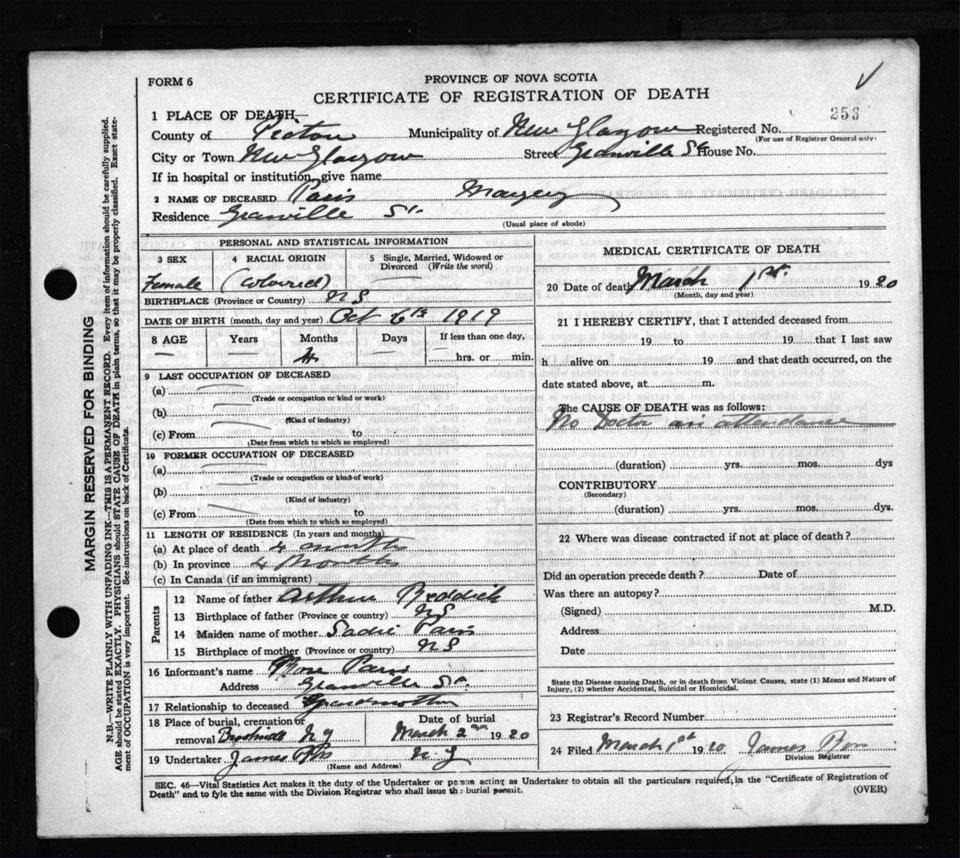 FORM 6
PROVINCE OF NOVA SCOTIA
CERTIFICATE OF REGISTRATION OF DEATH
1 PLACE OF DEATH—
County of Pictou Municipality of New Glasgow Registered No. 256
(For use of Registrar General only)
City or Town New Glasgow Street Granville St House No.
If in hospital or institution, give name
2 NAME OF DECEASED Paris
Residence Granville St.
(Usual place of abode)
PERSONAL AND STATISTICAL INFORMATION
3 SEX 4 RACIAL ORIGIN 5 Single, Married, Widowed or Divorced (Write the word)
Female (Colored)
BIRTHPLACE (Province or Country) N S
DATE OF BIRTH (month, day and year) Oct 6th 1919
8 AGE Years Months Days If less than one day,
4 hrs. or min.
9 LAST OCCUPATION OF DECEASED
(a)
(Trade or occupation or kind or work)
(b)
(Kind of industry)
(c) From to
(Date from which to which so employed)
10 FORMER OCCUPATION OF DECEASED
(a)
(Trade or occupation or kind of work)
(b)
(Kind of industry)
(c) From to
(Date from which to which so employed)
11 LENGTH OF RESIDENCE (In years and months)
(a) At place of death 4 months
(b) In province 4 Months
(c) In Canada (if an immigrant)
Parents
12 Name of father Arthur Reddick
13 Birthplace of father (Province or country) N S
14 Maiden name of mother Sadie Paris
15 Birthplace of mother (Province or country) N S
16 Informant's name Paris
Address Granville St.
17 Relationship to deceased Grandmother
18 Place of burial, cremation or removal N G Date of burial March 2nd 1920
19 Undertaker James N. G
(Name and Address)
MEDICAL CERTIFICATE OF DEATH
20 Date of death March 1st. 1920
(Month, day and year)
21 I HEREBY CERTIFY, that I attended deceased from
19 to 19 that I last saw
h alive on 19 and that death occurred, on the
date stated above, at m.
The CAUSE OF DEATH was as follows:
No Doctor in attendance
(duration) yrs. mos. dys
CONTRIBUTORY
(Secondary)
(duration) yrs. mos. dys.
22 Where was disease contracted if not at place of death?
Did an operation precede death? Date of
Was there an autopsy?
(Signed) M.D.
Address
Date
State the Disease causing Death, or in death from Violent Causes, state (1) Means and Nature of
Injury, (2) whether Accidental, Suicidal or Homicidal.
23 Registrar's Record Number
24 Filed March 1st 1920 James
Division Registrar
SEC. 46—Vital Statistics Act makes it the duty of the Undertaker or person acting as Undertaker to obtain all the particulars required, in the "Certificate of Registration of
Death" and to fyle the same with the Division Registrar who shall issue the burial permit. (OVER)
MARGIN RESERVED FOR BINDING
N.B.—WRITE PLAINLY WITH UNFADING INK—THIS IS A PERMANENT RECORD. Every item of information should be carefully supplied.
AGE should be stated EXACTLY. PHYSICIANS should STATE CAUSE OF DEATH in plain terms, so that it may be properly classified. Exact state-
ment of OCCUPATION is very important. See instructions on back of Certificate.